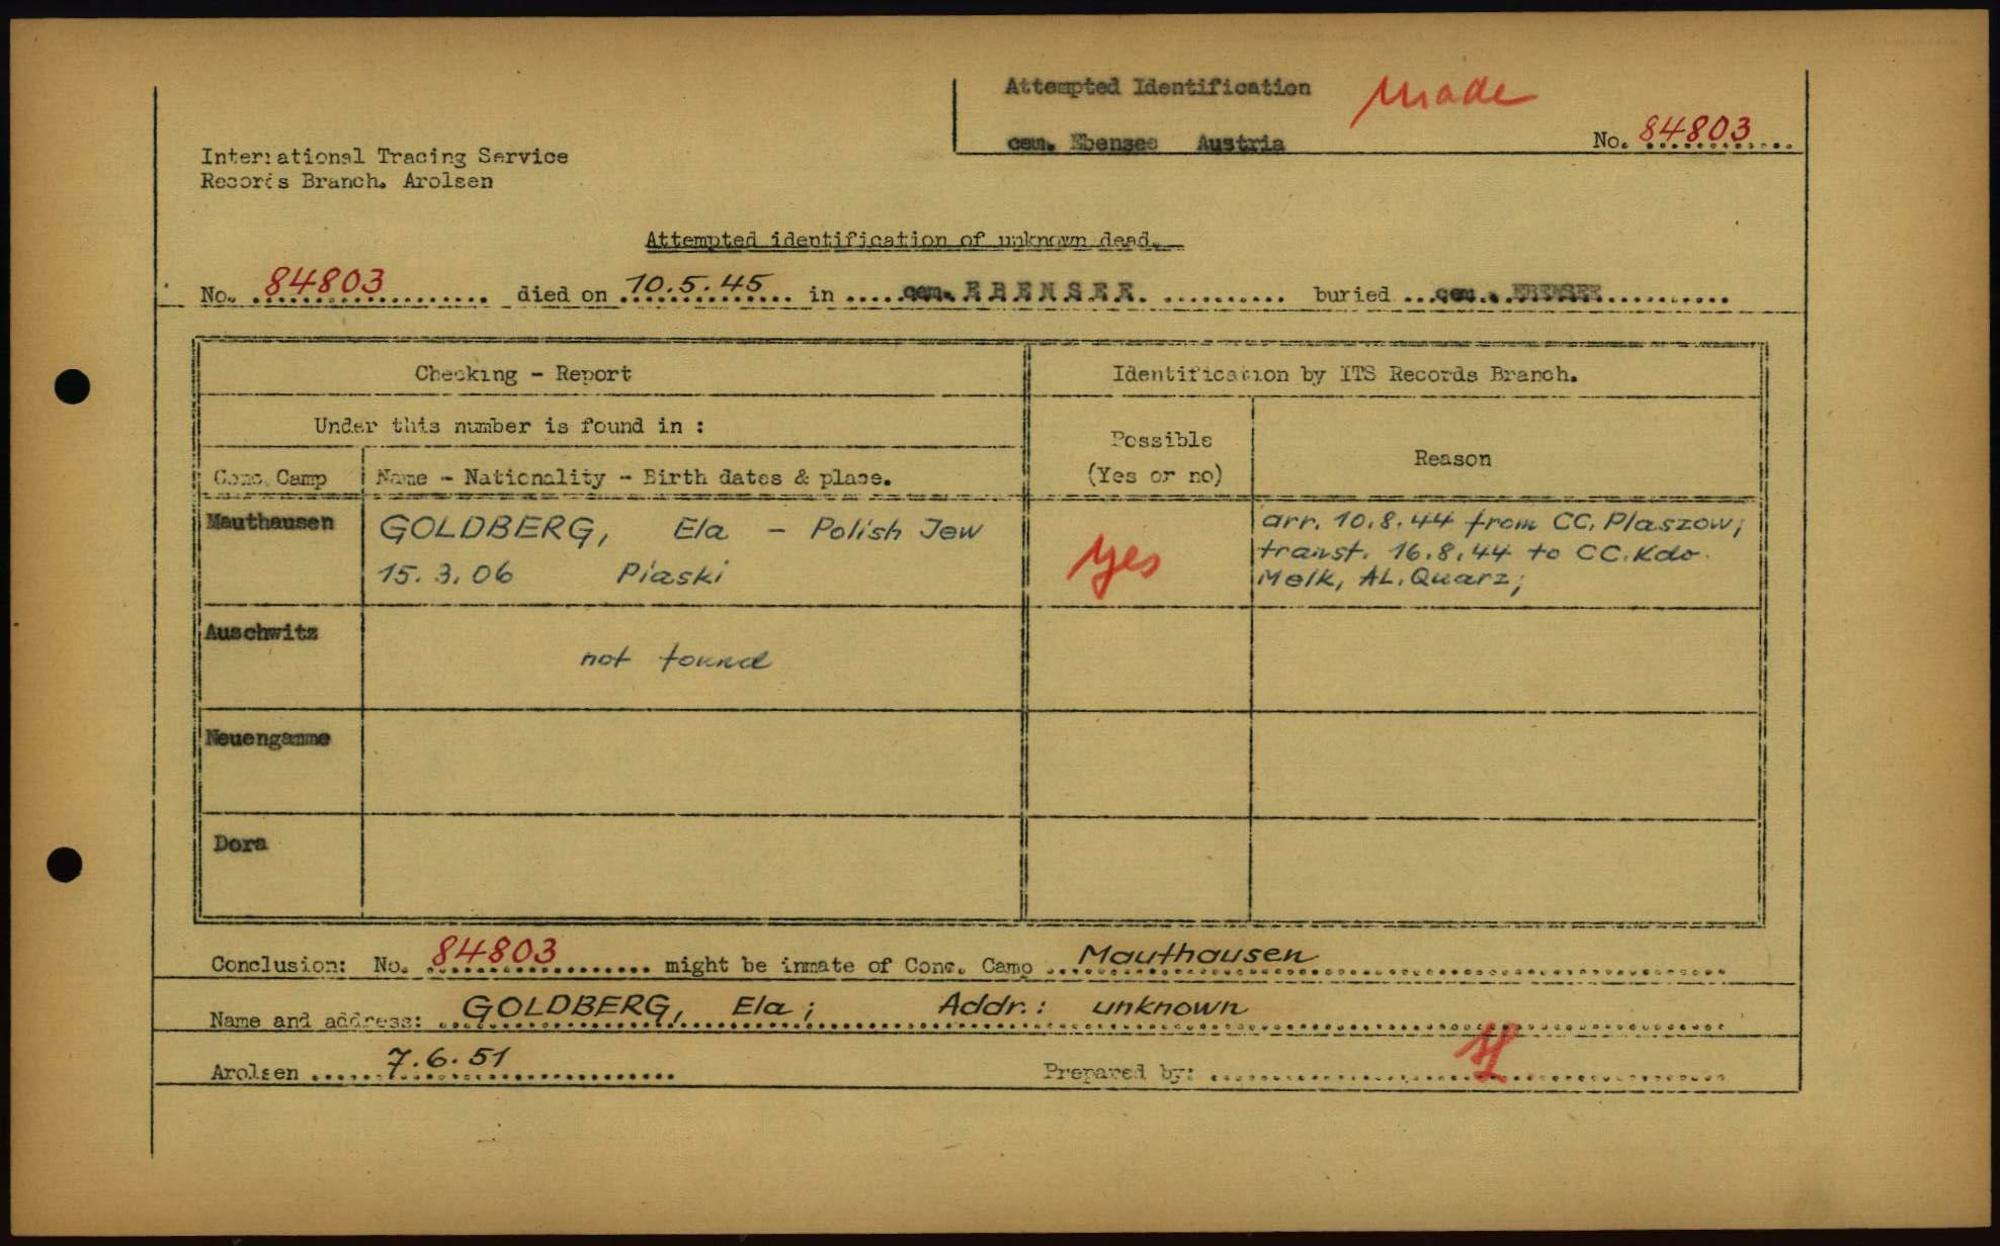 Attempted Identification made
cem. Ebensee Austria No. 84803
International Tracing Service
Records Branch. Arolsen
Attempted identification of unknown dead.
No. 84803 died on 10.5.45 in cem. EBENSEE. buried cem. EBENSEE
Checking - Report Identification by ITS Records Branch.
Under this number is found in :
Possible
(Yes or no) Reason
Conc. Camp Name - Nationality - Birth dates & place.
Mauthausen GOLDBERG, Ela - Polish Jew
15.3.06 Piaski
yes
arr. 10.8.44 from CC. Plaszow;
transt. 16.8.44 to CC. Kdo.
Melk, AL. Quarz;
Auschwitz
not found
Neuengamme
Dora
Conclusion: No. 84803 might be inmate of Conc. Camp Mauthausen
Name and address: GOLDBERG, Ela; Addr.: unknown
Arolsen 7.6.51 Prepared by: